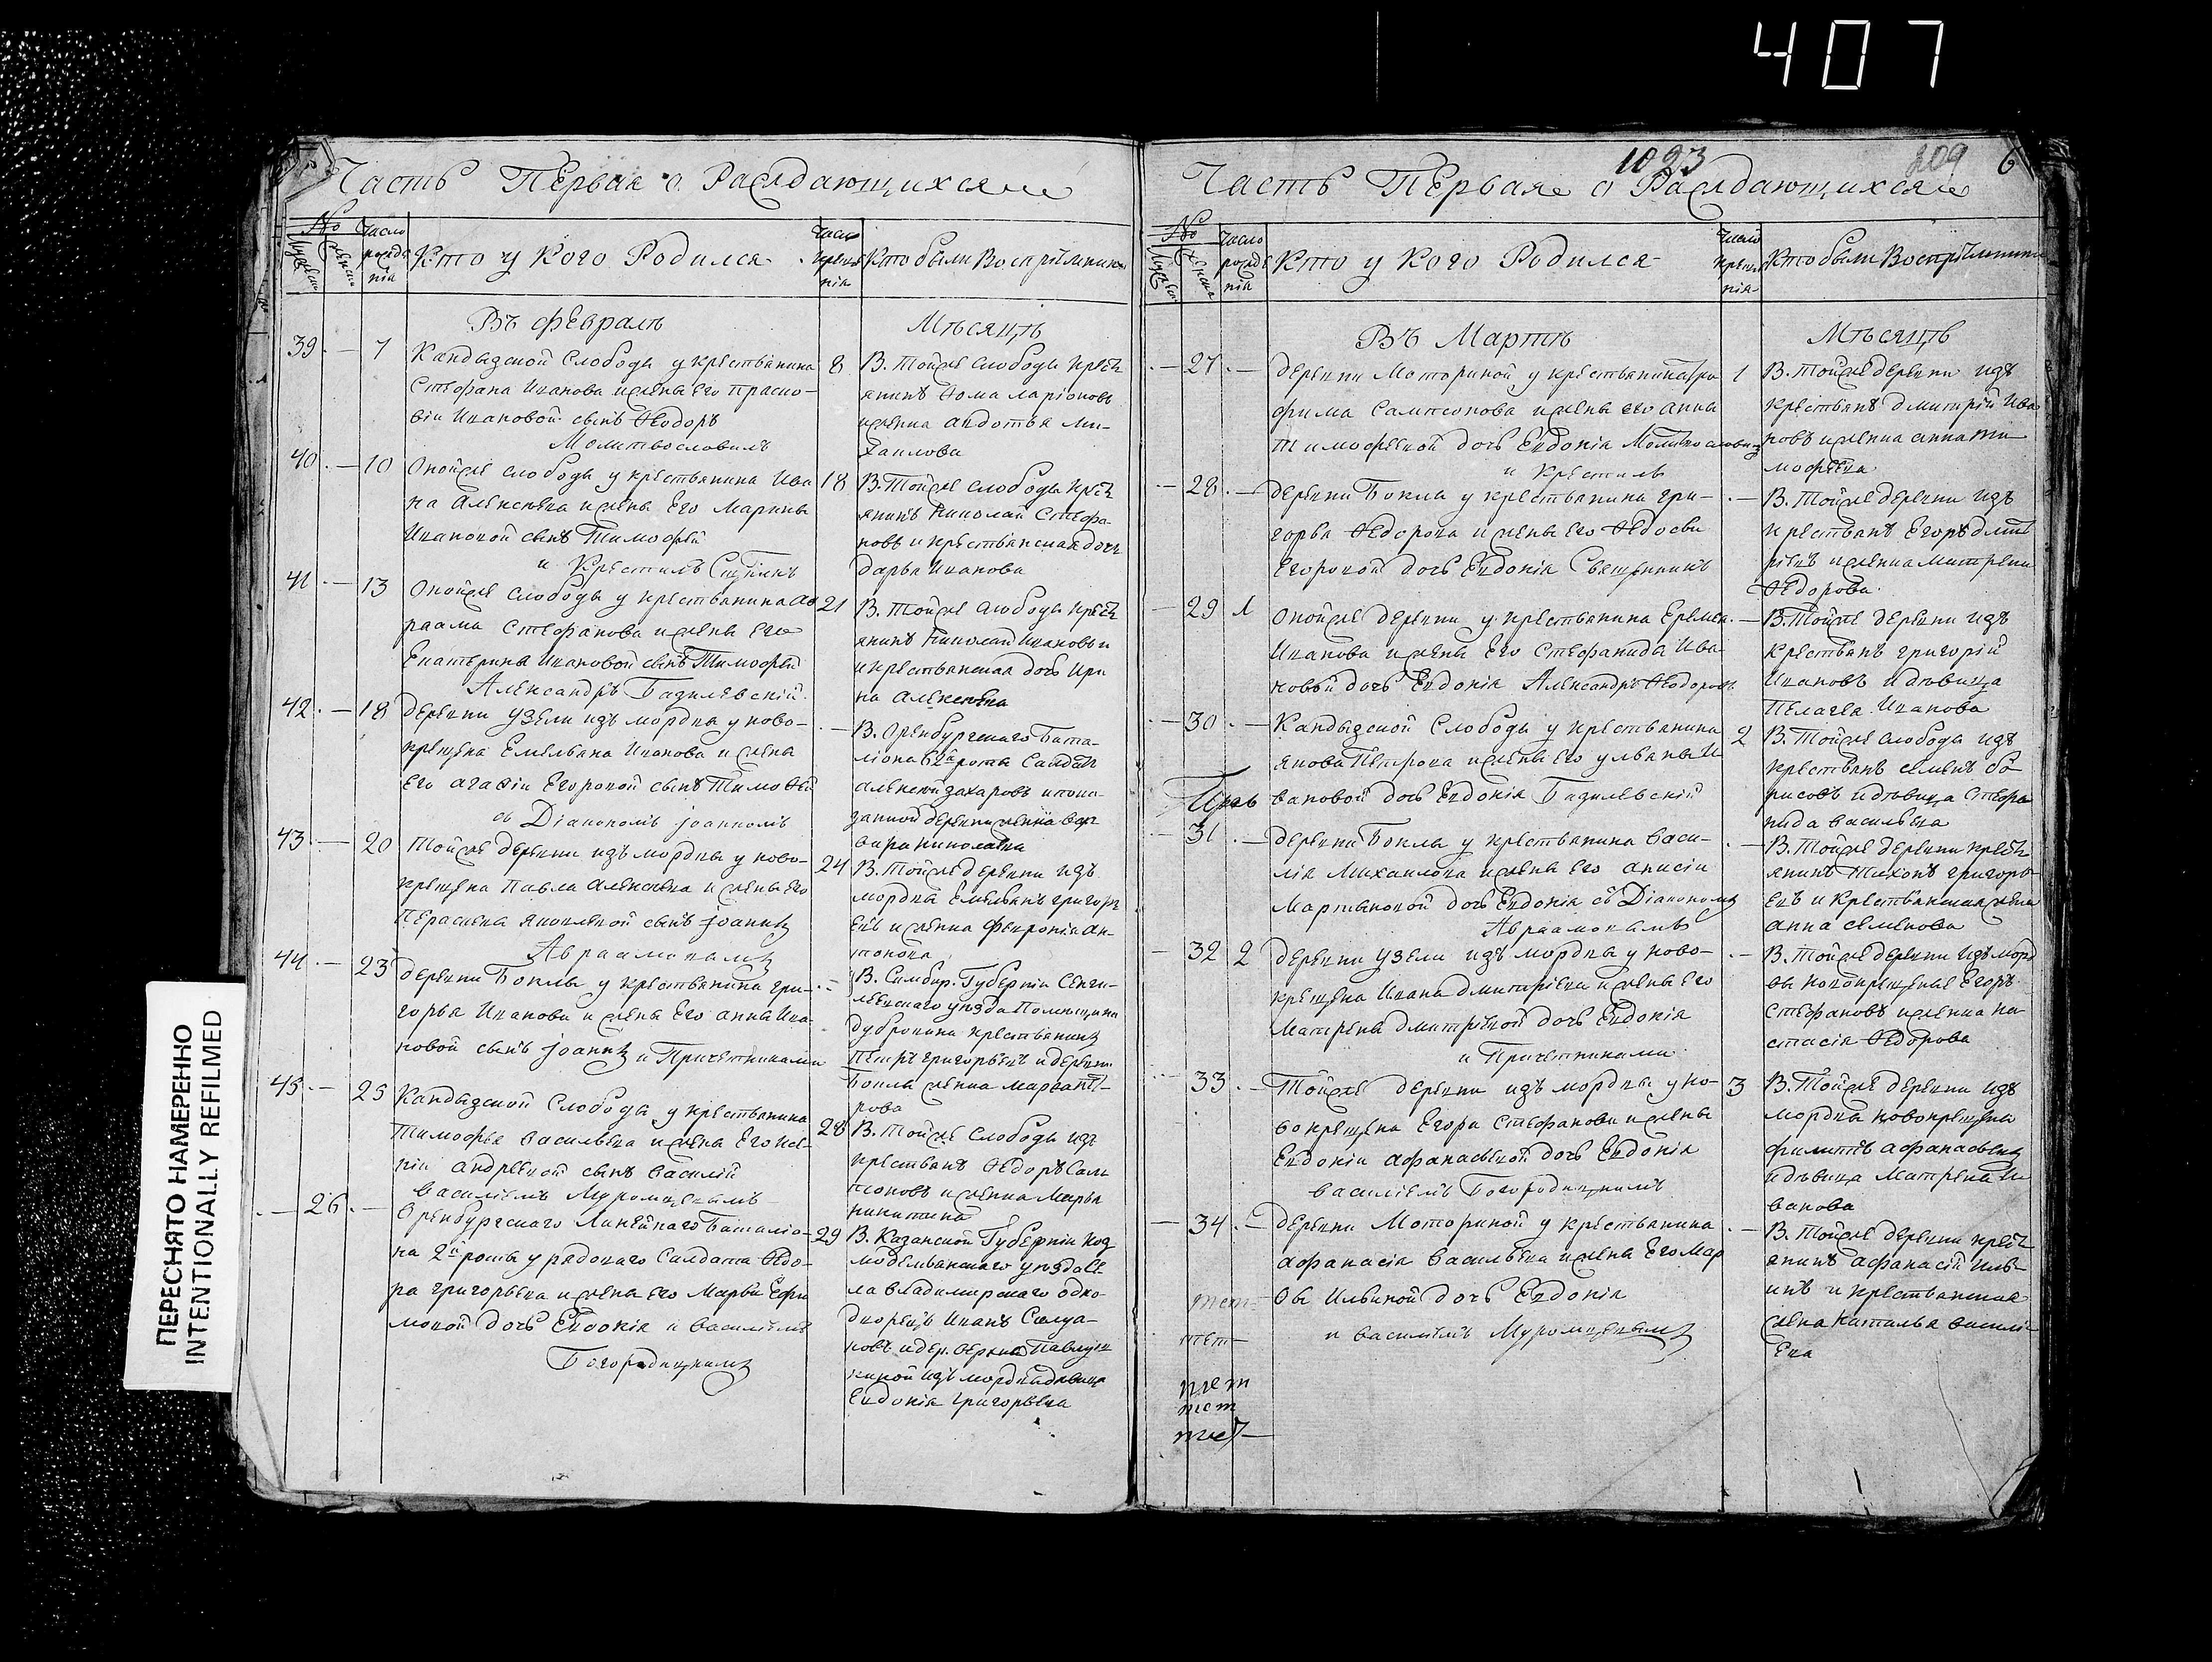 407
ПЕРЕСНЯТО НАМЕРЕННО
INTENTIONALLY REFILMED
Часть Первая о Раждающихся
№
Число рожденія
Кто у Кого Родился
Число крещенія
Кто были Воспріемники
Въ февралѣ
Мѣсяцѣ
39 — 7
Кандызской Слободы у крестьянина
Стефана Иванова и жены его праско-
віи Ивановой сынъ Ѳеодоръ
Молитвословилъ
8
В. Тойже слободы крест
янинъ Ѳома ларіоновъ
и женка авдотья Ми-
хаилова
40 — 10
Оной же слободы у крестьянина Ива
на Алексѣева и жены Его Марины
Ивановой сынъ Тимофей
и Крестилъ
18
В. Тойже слободы крест
янинъ Николай Стефа-
новъ и крестьянская дочь
дарья Иванова
41 — 13
Оной же слободы у крестьянина Ав
раама Стефанова и жены Его
Екатерины Ивановой сынъ Тимофей
Александръ Базилевскій
21
В. Тойже слободы крест
янинъ Николай Ивановъ и
и крестьянская дочь Ири
на Алексѣева
42 — 18
деревни Узели изъ мордвы у ново-
крещена Емельяна Иванова и жены
Его агафіи Егоровой сынъ Тимофей
съ Діакономъ Іоанномъ
—
В. Оренбургскаго Бата-
ліона роты Салдатъ
алексей захаровъ и пока-
занной деревни женка вар
вара николаева
43 — 20
Тойже деревни изъ мордвы у ново-
крещена Павла Алексѣева и жены Его
Перасиевы Яковлевой сынъ Іоаннъ
Авраамовымъ
24
В. Тойже деревни изъ
мордвы Емельянъ григорь
евъ и женка февронія ан-
тонова
44 — 23
деревни Боклы у крестьянина гри-
горья Иванова и жены Его анны Ива-
новой сынъ Іоаннъ и Причетниками
—
В. Симбир. Губерніи Сенги-
леевскаго уезда Помещика
дубровина крестьянинъ
Петръ григорьевъ и деревни
Боклы женка марѳа Пет-
рова
45 — 25
Кандызской Слободы у крестьянина
Тимофея васильева и жены Его Ксе-
ніи андреевой сынъ василій
васильемъ Муромцевымъ
28
В. Тойже Слободы изъ
крестьянъ Ѳедоръ Сам
псоновъ и женка Марья
никитина
— 26 —
Оренбургскаго Линейнаго Баталіо-
на 2й роты у рядоваго Салдата Ѳедо-
ра григорьева и жены его Марьи Ефи
мовой дочь Евдокія и васильемъ
Богородицкимъ
29
В. Казанской Губерніи Коз
модемьянскаго уезда Се
ла владимирскаго одно-
дворецъ Иванъ
новъ и дер.
киной изъ мордвы девица
Евдокія григорьева
1023
209
6
Часть Первая о Раждающихся
№
Число рожденія
Кто у Кого Родился
Число крещенія
Кто были Воспріемники
Въ Мартѣ
Мѣсяцѣ
— 27 —
деревни Моториной у крестьянина Тро
фима Сампсонова и жены его анны
Тимофеевой дочь Евдокія Молитвословилъ
и Крестилъ
1
В. Тойже деревни изъ
крестьянъ дмитрій Ива
новъ и женка анна Ти-
мофеева
— 28 —
деревни Боклы у крестьянина гри-
горья Ѳедорова и жены его Ѳедосьи
Егоровой дочь Евдокія Священникъ
—
В. Тойже деревни изъ
крестьянъ Егоръ дмит
ріевъ и женка Матрена
Ѳедорова
— 29 1
Оной же деревни у крестьянина Еремея
Иванова и жены Его Стефаниды Ива-
новой дочь Евдокія Александръ Ѳеодоровъ
—
В. Тойже деревни изъ
крестьянъ григорій
Ивановъ и девица
Пелагея Иванова
— 30 —
Кандызской Слободы у крестьянина
якова Петрова и жены Его ульяны И-
вановой дочь Евдокія Базилевскій
2
В. Тойже слободы изъ
крестьянъ семенъ бо-
рисовъ и девица Стефа
нида васильева
— 31 —
деревни Боклы у крестьянина васи-
лія Михаилова и жены Его анисіи
Мартыновой дочь Евдокія съ Діакономъ
Авраамовымъ
—
В. Тойже деревни крест
янинъ Тихонъ григорь-
евъ и крестьянская жена
анна семенова
— 32 2
деревни Узели изъ мордвы у ново-
крещена Ивана дмитріева и жены Его
Матрены дмитріевой дочь Евдокія
и Причетниками
—
В. Тойже деревни изъ морд
вы новокрещеные Егоръ
Стефановъ и женка на
стасія Ѳедорова
33 —
Тойже деревни изъ мордвы у но-
вокрещена Егора Стефанова и жены
Евдокіи афанасьевой дочь Евдокія
васильемъ Богородицкимъ
3
В. Тойже деревни изъ
мордвы новокрещены
филиппъ афанасьевъ
и девица Матрена И-
ванова
— 34 —
деревни Моториной у крестьянина
афанасія васильева и жены Его Мар
ѳы Ильиной дочь Евдокія
и васильемъ Муромцевымъ
—
В. Тойже деревни крест
янинъ афанасій Иль-
инъ и крестьянская
жена Наталья василь-
ева